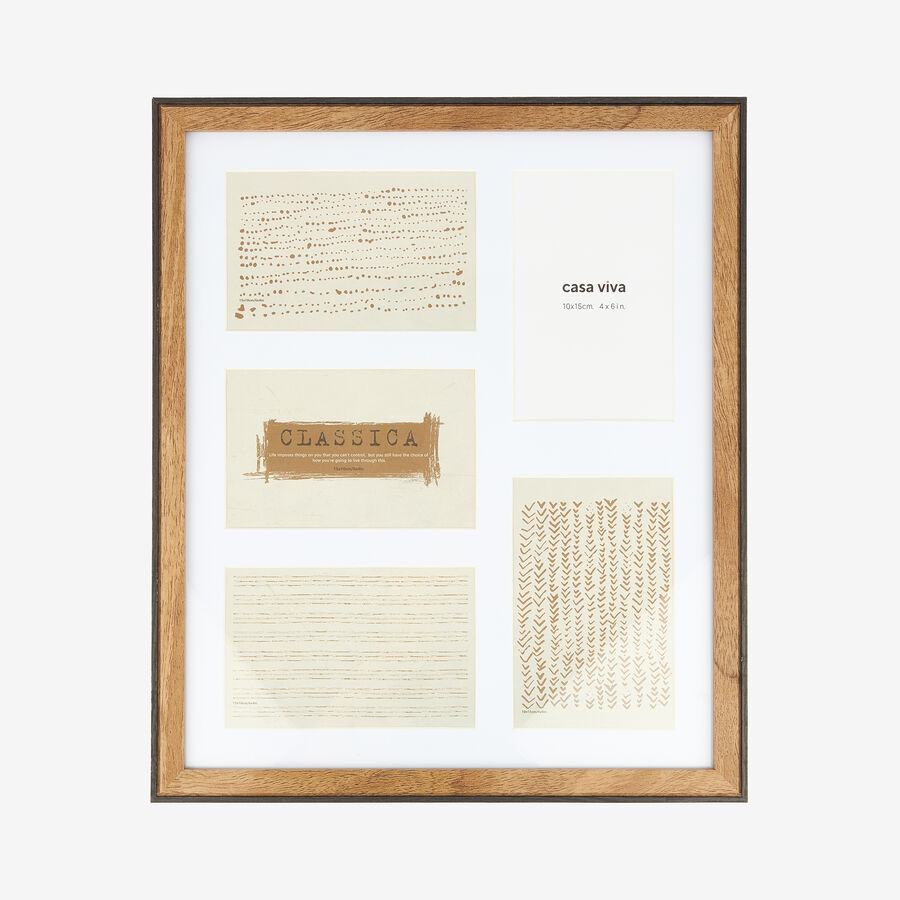 casa viva
10x15cm. 4x6in.
CLASSICA
Life imposes things on you that you can't control, but you still have the choice of
how you're going to live through this.